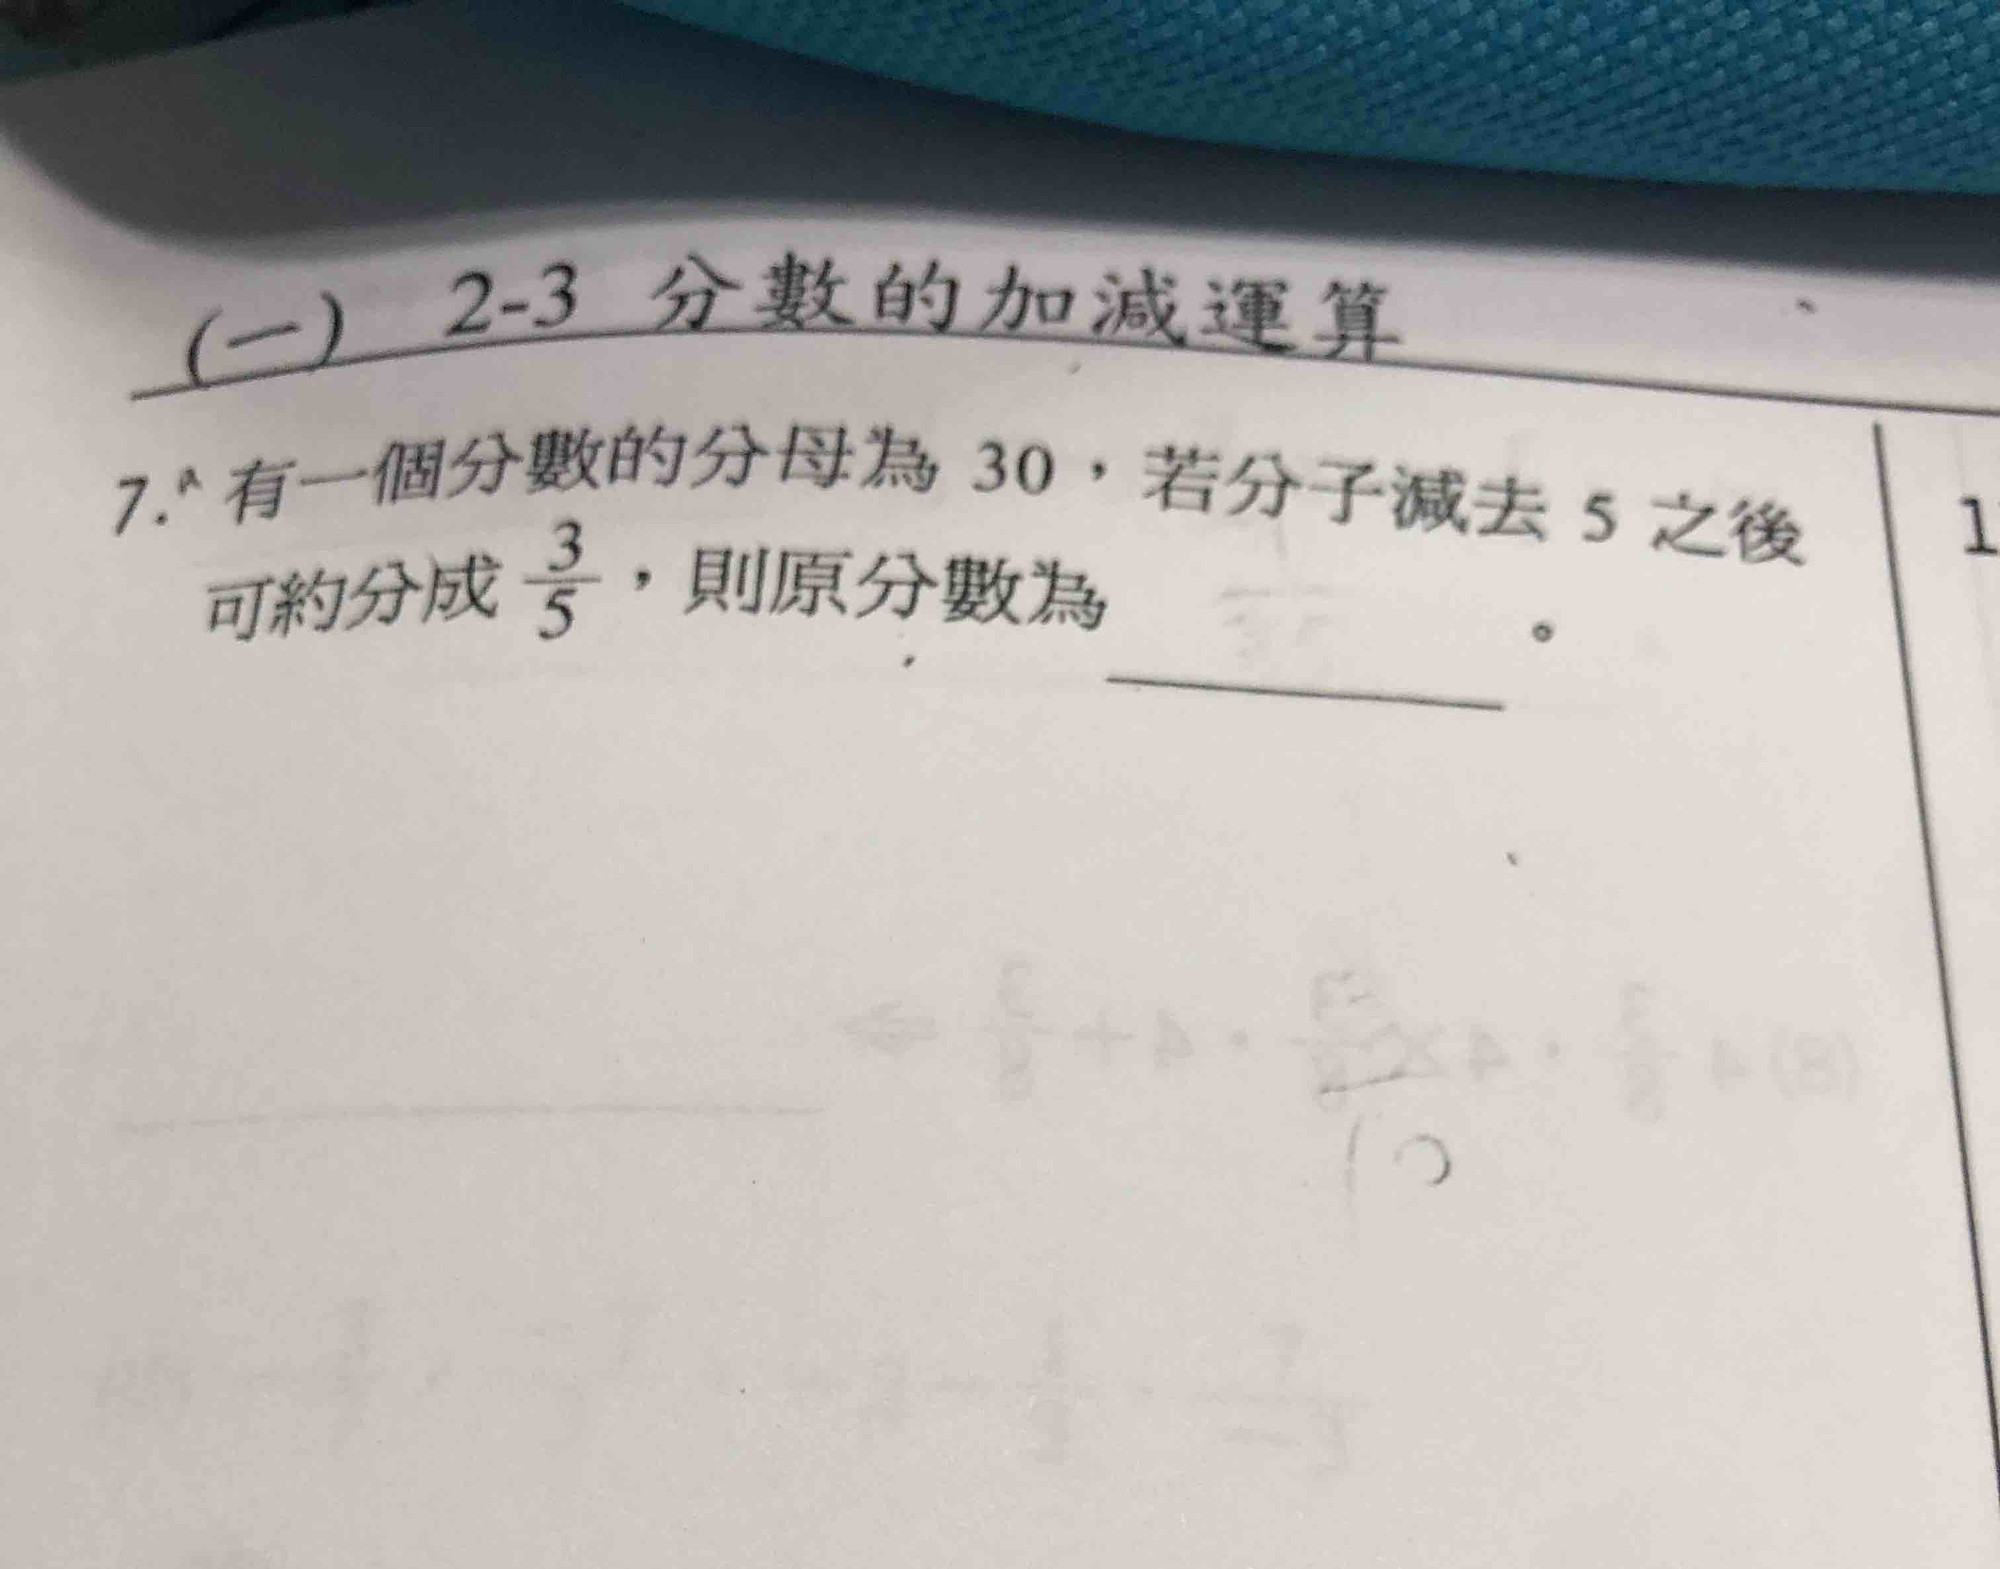 (一) 2-3 分數的加減運算
7. 有一個分數的分母為 30，若分子減去 5 之後
可約分成 3/5，則原分數為________。
1